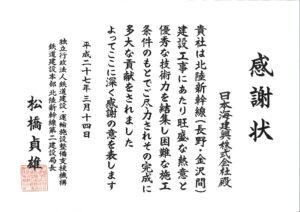 感謝状
日本海建興株式会社殿
貴社は北陸新幹線(長野・金沢間)
建設工事にあたり旺盛な熱意と
優秀な技術力を結集し困難な施工
条件のもとでご尽力されその完成に
多大な貢献をされました
よってここに深く感謝の意を表します
平成二十七年三月十四日
独立行政法人鉄道建設・運輸施設整備支援機構
鉄道建設本部 北陸新幹線第二建設局長
松橋貞雄